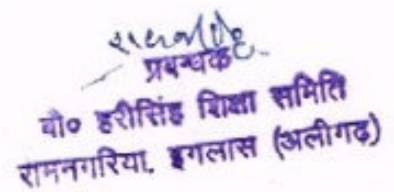 प्रबन्धक
चौ० हरीसिंह शिक्षा समिति
रामनगरिया, इगलास (अलीगढ़)